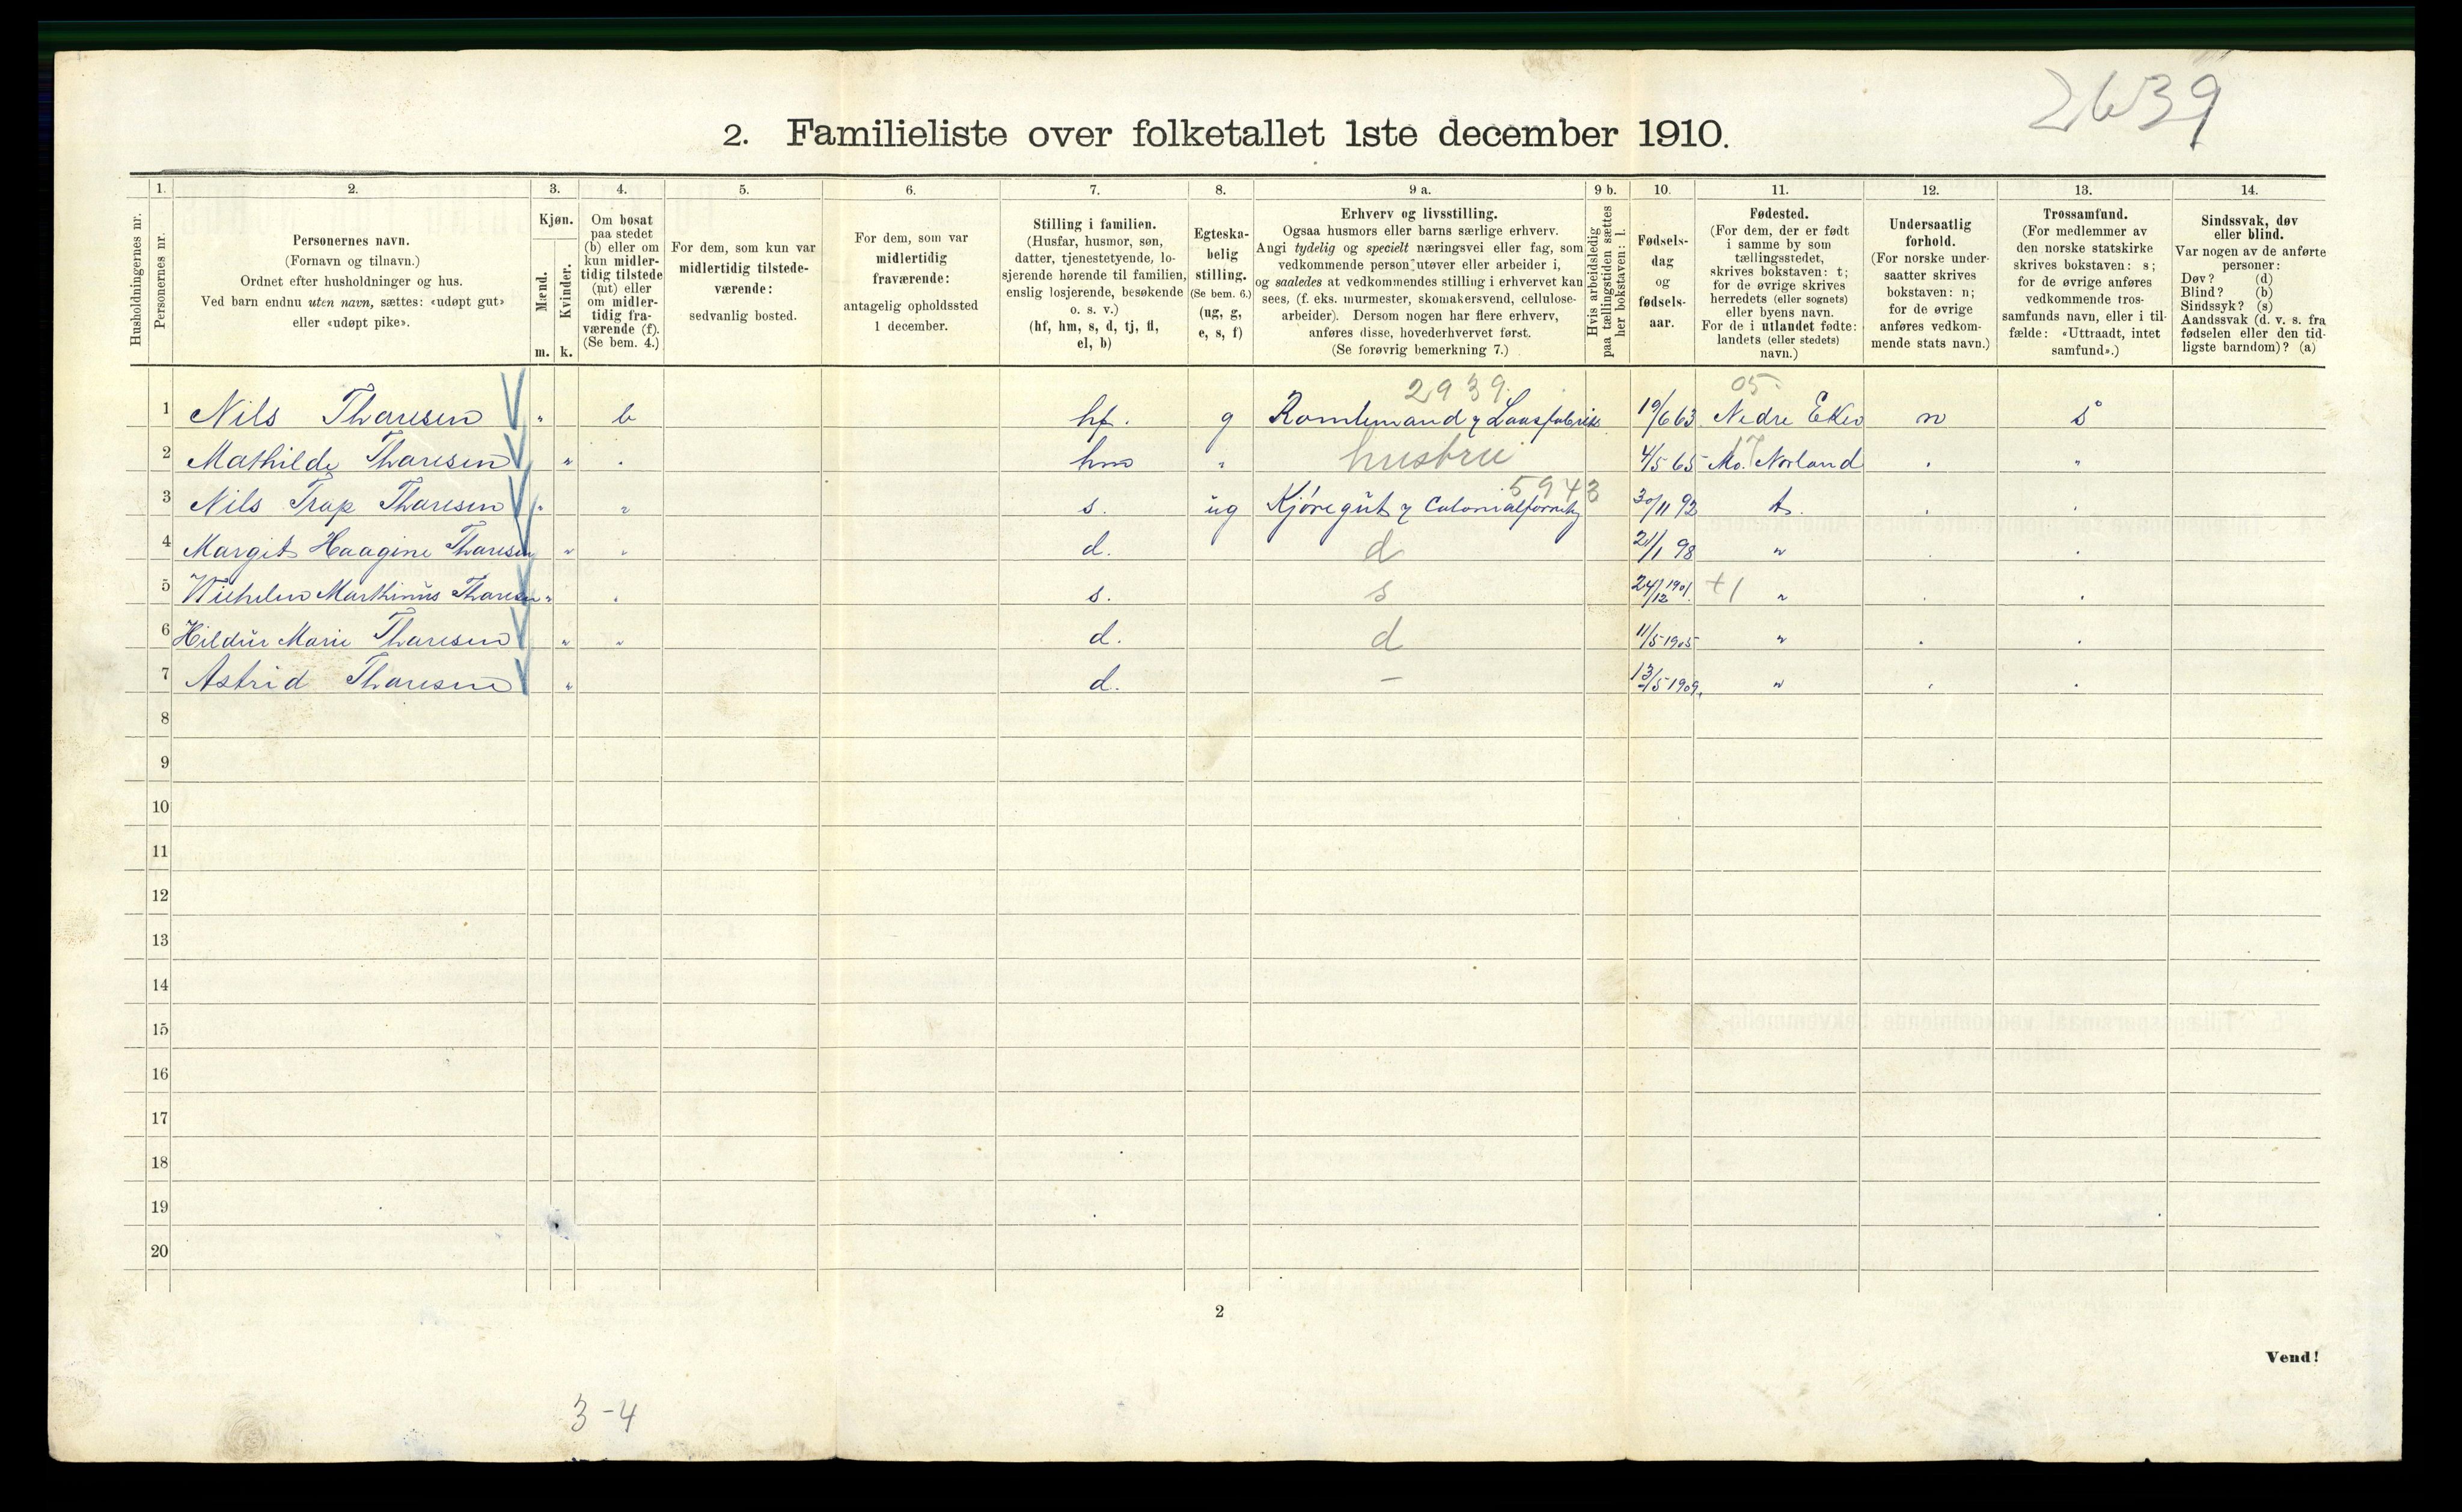 2639
2. Familieliste over folketallet 1ste december 1910.
1. 2. 3. 4. 5. 6. 7. 8. 9 a. 9 b. 10. 11. 12. 13. 14.
Husholdningernes nr.
Personernes nr.
Personernes navn.
(Fornavn og tilnavn.)
Ordnet efter husholdninger og hus.
Ved barn endnu uten navn, sættes: «udøpt gut»
eller «udøpt pike».
Kjøn.
Mænd.
Kvinder.
m. k.
Om bosat
paa stedet
(b) eller om
kun midler-
tidig tilstede
(mt) eller
om midler-
tidig fra-
værende (f).
(Se bem. 4.)
For dem, som kun var
midlertidig tilstede-
værende:
sedvanlig bosted.
For dem, som var
midlertidig
fraværende:
antagelig opholdssted
1 december.
Stilling i familien.
(Husfar, husmor, søn,
datter, tjenestetyende, lo-
sjerende hørende til familien,
enslig losjerende, besøkende
o. s. v.)
(hf, hm, s, d, tj, fl,
el, b)
Egteska-
belig
stilling.
(Se bem. 6.)
(ug, g,
e, s, f)
Erhverv og livsstilling.
Ogsaa husmors eller barns særlige erhverv.
Angi tydelig og specielt næringsvei eller fag, som
vedkommende person utøver eller arbeider i,
og saaledes at vedkommendes stilling i erhvervet kan
sees, (f. eks. murmester, skomakersvend, cellulose-
arbeider). Dersom nogen har flere erhverv,
anføres disse, hovederhvervet først.
(Se forøvrig bemerkning 7.)
Hvis arbeidsledig
paa tællingstiden sættes
her bokstaven: l.
Fødsels-
dag
og
fødsels-
aar.
Fødested.
(For dem, der er født
i samme by som
tællingsstedet,
skrives bokstaven: t;
for de øvrige skrives
herredets (eller sognets)
eller byens navn.
For de i utlandet fødte:
landets (eller stedets)
navn.)
Undersaatlig
forhold.
(For norske under-
saatter skrives
bokstaven: n;
for de øvrige
anføres vedkom-
mende stats navn.)
Trossamfund.
(For medlemmer av
den norske statskirke
skrives bokstaven: s;
for de øvrige anføres
vedkommende tros-
samfunds navn, eller i til-
fælde: «Uttraadt, intet
samfund».)
Sindssvak, døv
eller blind.
Var nogen av de anførte
personer:
Døv? (d)
Blind? (b)
Sindssyk? (s)
Aandssvak (d. v. s. fra
fødselen eller den tid-
ligste barndom)? (a)
2939. 05
1 Nils Tharesen V " b hf. g Romlemand y Laasfabrik 19/6 63 Nedre Eker n s
2 Mathilde Tharesen V " " hm " hustru 4/5 65 Mo. Norland " "
5943
3 Nils Trap Tharesen V " " s. ug Kjøregut y Colonialforretn 30/11 92 t. " "
4 Margit Haagine Tharesen " " d. d 21/1 98 " " "
5 Wilhelm Marthinus Tharesen " " s. s 24/12 1901. +1 " " "
6 Hildur Marie Tharesen V " " d. d 11/5 1905 " " "
7 Astrid Tharesen V " d. – 13/5 1909. " " "
8
9
10
11
12
13
14
15
16
17
18
19
20
2
Vend!
3-4